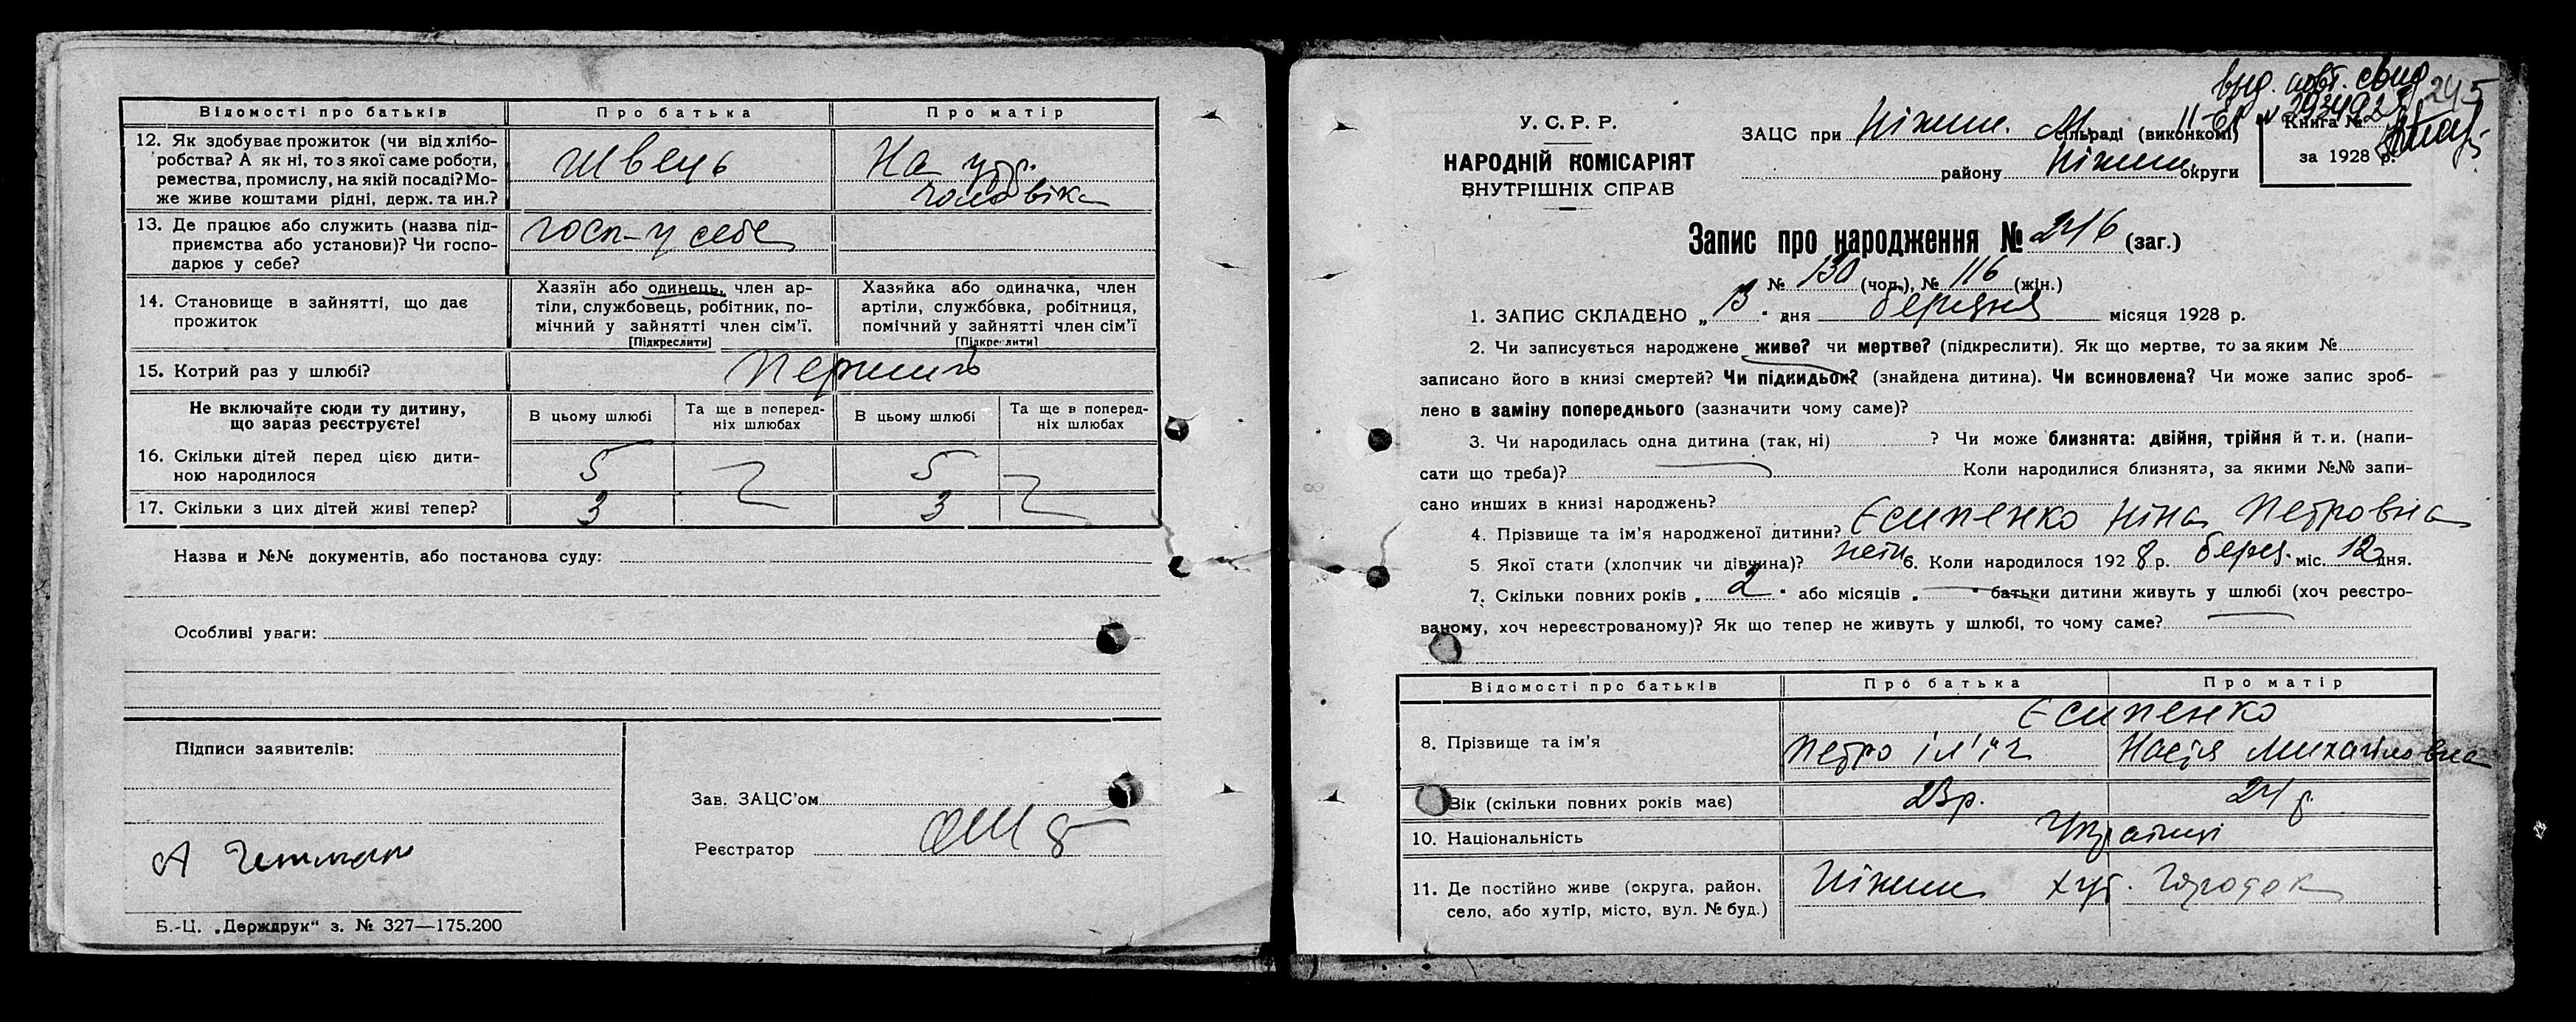 Відомості про батьків Про батька Про матір
12. Як здобуває прожиток (чи від хлібо-
робства? А як ні, то з якої саме роботи,
ремества, промислу, на якій посаді? Мо-
же живе коштами рідні, держ. та ин.?
Швець
На утр.
чоловіка
13. Де працює або служить (назва під-
приємства або установи)? Чи госпо-
дарює у себе?
госп-у себе
14. Становище в зайнятті, що дає
прожиток
Хазяїн або одинець, член ар-
тіли, службовець, робітник, по-
мічний у зайнятті член сім'ї.
[Підкреслити]
Хазяйка або одиначка, член
артіли, службовка, робітниця,
помічний у зайнятті член сім'ї
[Підкреслити]
15. Котрий раз у шлюбі?
Не включайте сюди ту дитину,
що зараз реєструєте!
В цьому шлюбі
Та ще в поперед-
ніх шлюбах
В цьому шлюбі
Та ще в поперед-
ніх шлюбах
16. Скільки дітей перед цією дити-
ною народилося
5 5
17. Скільки з цих дітей живі тепер? 3 3
Назва и №№ документів, або постанова суду:
Особливі уваги:
Підписи заявителів:
Зав. ЗАЦС'ом
Реєстратор
Б.-Ц. „Держдрук“ з. № 327—175.200
245
У. С. Р. Р.
НАРОДНІЙ КОМІСАРІЯТ
ВНУТРІШНІХ СПРАВ
ЗАЦС при Ніжин. М. сільраді (виконкомі)
району Ніжин. округи
Книга №
за 1928 р.
Запис про народження № 246 (заг.)
№ 130 (чол.), № 116 (жін.)
1. ЗАПИС СКЛАДЕНО „13“ дня березня місяця 1928 р.
2. Чи записується народжене живе? чи мертве? (підкреслити). Як що мертве, то за яким №
записано його в книзі смертей? Чи підкидьок? (знайдена дитина). Чи всиновлена? Чи може запис зроб-
лено в заміну попереднього (зазначити чому саме)?
3. Чи народилась одна дитина (так, ні) ? Чи може близнята: двійня, трійня й т. и. (напи-
сати що треба)? Коли народилися близнята, за якими №№ запи-
сано инших в книзі народжень?
4. Прізвище та ім'я народженої дитини? Єсипенко Ніна Петровна
5 Якої стати (хлопчик чи дівчина)? 6. Коли народилося 1928 р. берез. міс. 12 дня.
7. Скільки повних років „2“ або місяців „—“ батьки дитини живуть у шлюбі (хоч реєстро-
ваному, хоч нереєстрованому)? Як що тепер не живуть у шлюбі, то чому саме?
Відомості про батьків Про батька Про матір
Єсипенко
8. Прізвище та ім'я Петро Іл'іч Настя Михайловна
Вік (скільки повних років має) 23 р. 24 р.
10. Національність Українці
11. Де постійно живе (округа, район,
село, або хутір, місто, вул. № буд.)
Ніжин хут. Городок